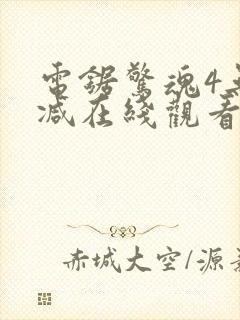 電鋸驚魂4無
减在綫觀看
赤城大空/源